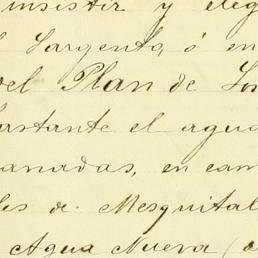 insistir y eleg
Sargento, ó en
del Plan de Lo
bastante el agua
anadas, en cam
les de Mesquital
Agua Nueva (a